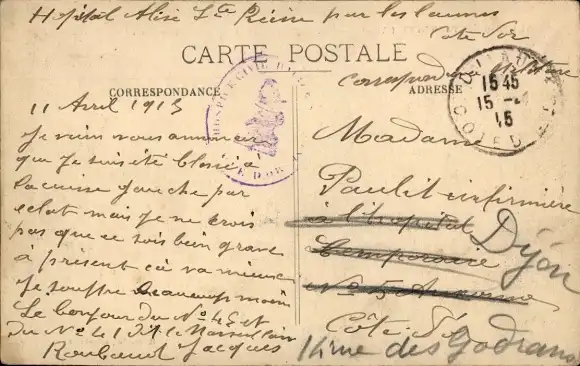 Hopital Alise Ste Reine par les laumes
Cote d'or
CARTE POSTALE
Correspondance militaire
CORRESPONDANCE
ADRESSE
15 45
15 - 4
15
COTE D'OR
11 Avril 1915
Je vien vous annoncer
que Je suis été blessé a
la cuisse gauche par
eclat mais je ne crois
pas que ce sois bien grave
à présent ca va mieux
Je souffre beaucoup moin
Le bonjour du No 45 et
du No 41 dit le Marseillais
Jacques
Madame
Paulit infirmière
à l'hopital
temporaire
No 5 Auxonne
Dijon
Côte d'Or
14 rue des Godrans